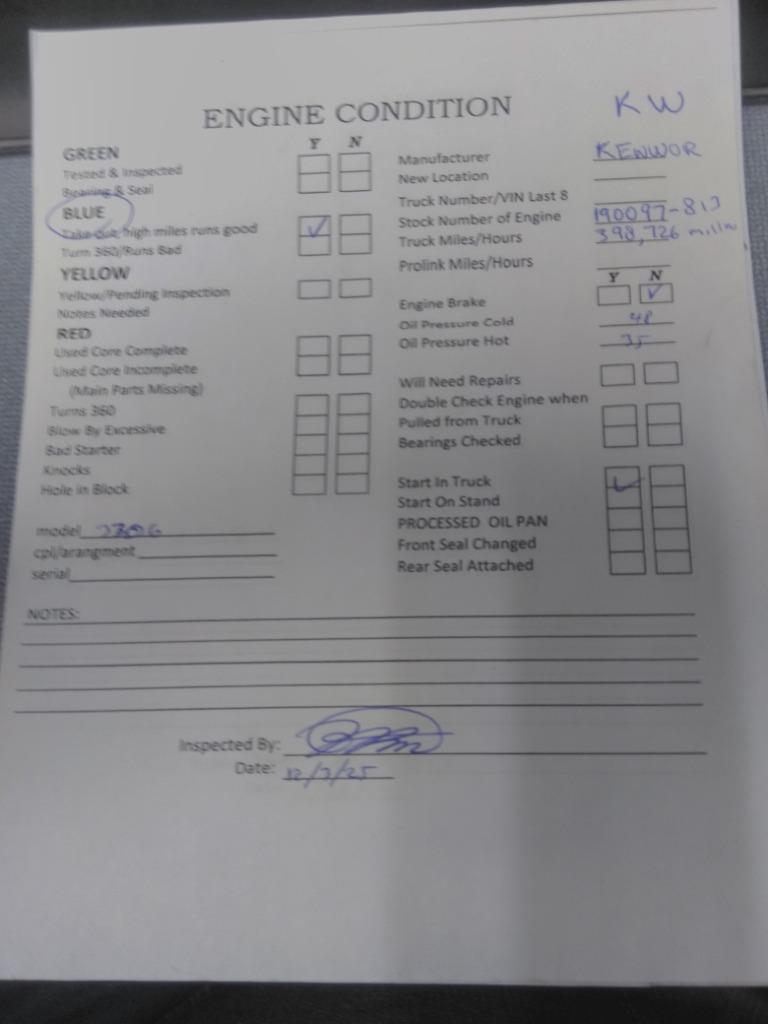 KW
ENGINE CONDITION
Y N
GREEN
Tested & Inspected
Bearing & Seal
BLUE
Take out, high miles runs good
Turn 360/Runs Bad
YELLOW
Yellow/Pending Inspection
Notes Needed
RED
Used Core Complete
Used Core Incomplete
(Main Parts Missing)
Turns 360
Blow By Excessive
Bad Starter
Knocks
Hole in Block
model
cpl/arangment
serial
Manufacturer KENWOR
New Location
Truck Number/VIN Last 8
Stock Number of Engine 190097-813
Truck Miles/Hours 398,726 
Prolink Miles/Hours
Y N
Engine Brake
Oil Pressure Cold 48
Oil Pressure Hot 35
Will Need Repairs
Double Check Engine when
Pulled from Truck
Bearings Checked
Start In Truck
Start On Stand
PROCESSED OIL PAN
Front Seal Changed
Rear Seal Attached
NOTES:
Inspected By:
Date: 12/3/25